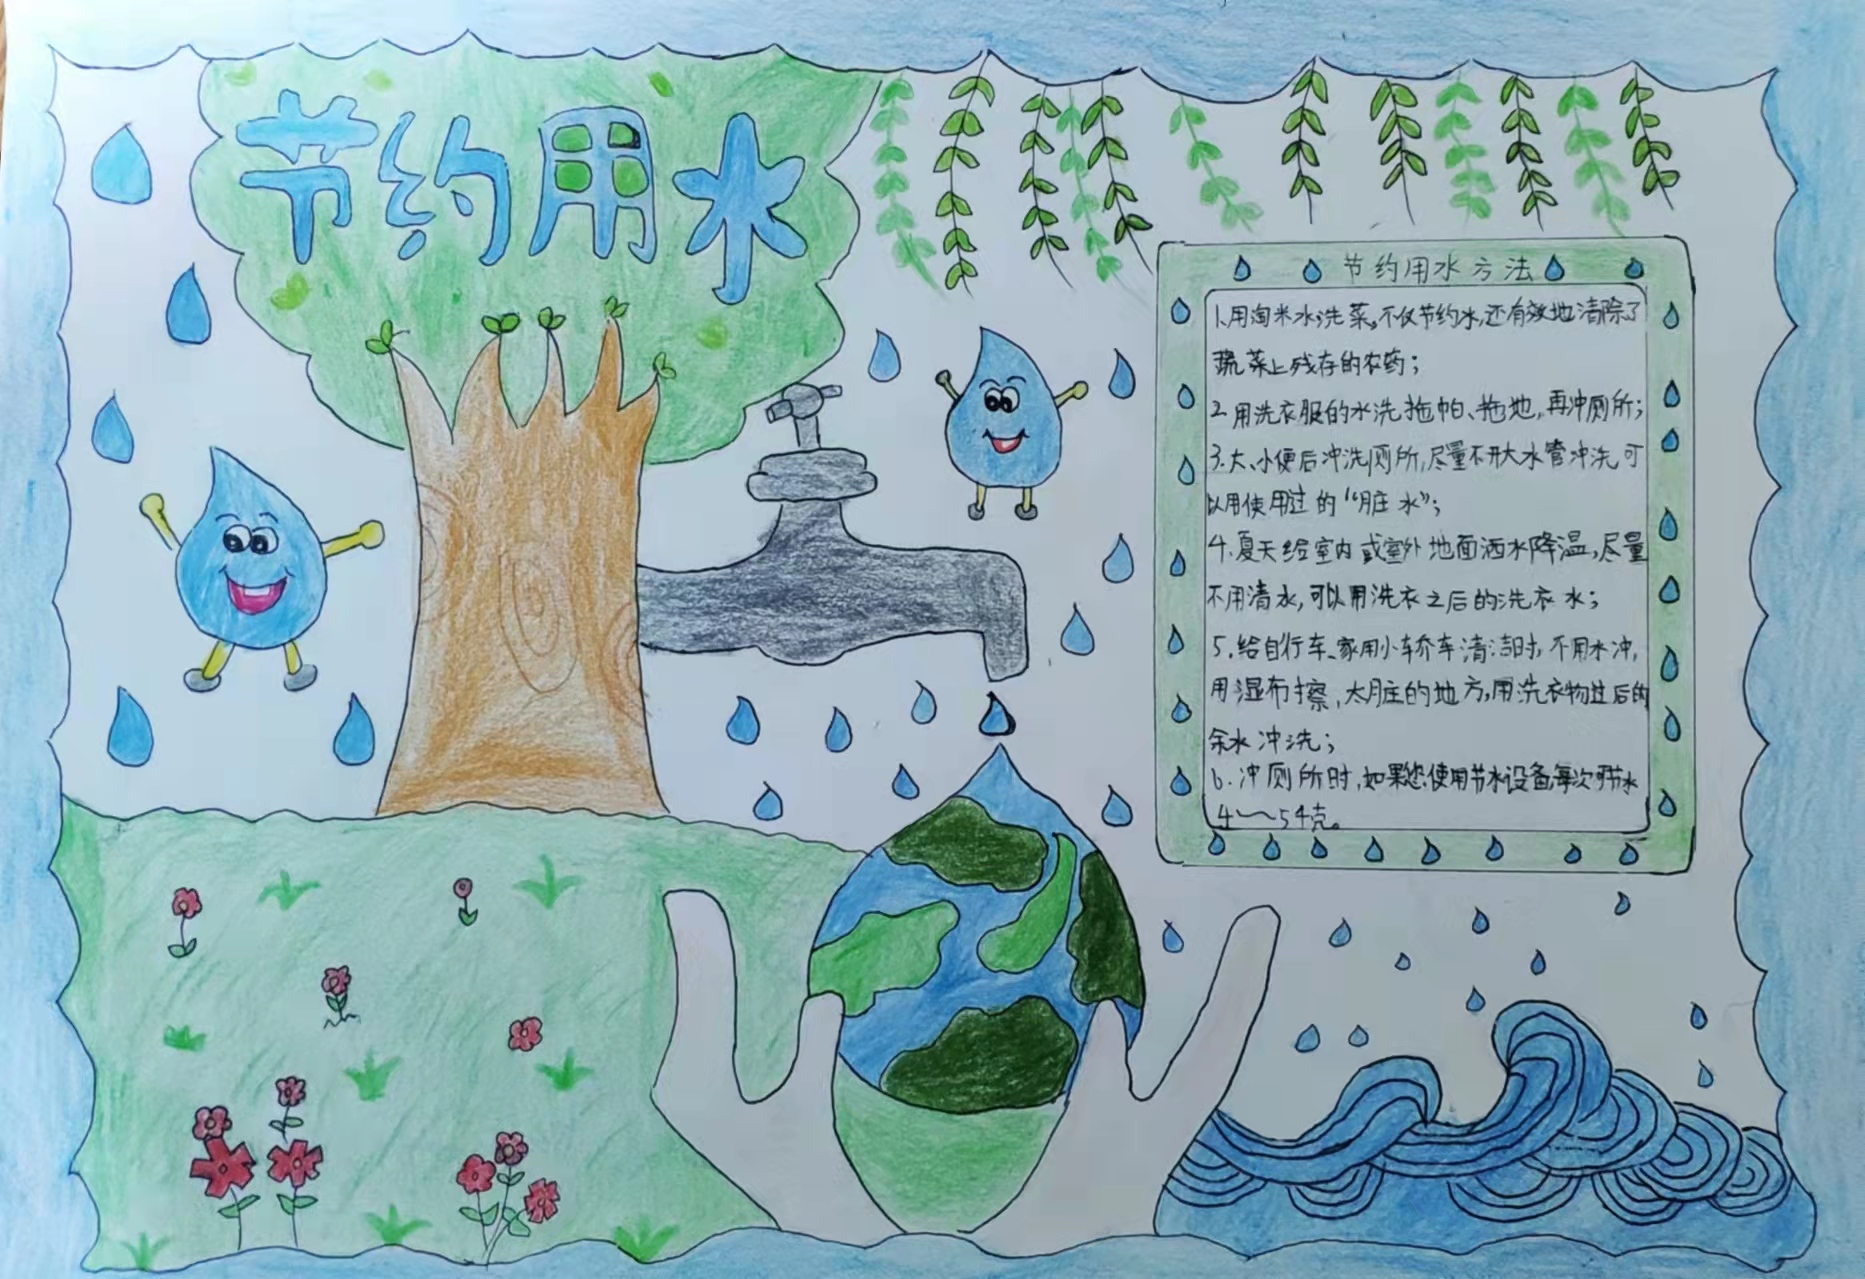 节约用水
节约用水方法
1.用淘米水洗菜,不仅节约水,还有效地清除了
蔬菜上残存的农药;
2.用洗衣服的水洗拖帕、拖地,再冲厕所;
3.大、小便后冲洗厕所,尽量不开大水管冲洗,可
以用使用过的“脏水”;
4.夏天给室内或室外地面洒水降温,尽量
不用清水,可以用洗衣之后的洗衣水;
5.给自行车、家用小轿车清洁时,不用水冲,
用湿布擦,太脏的地方,用洗衣物过后的
余水冲洗;
6.冲厕所时,如果您使用节水设备,每次可节水
4~54克。